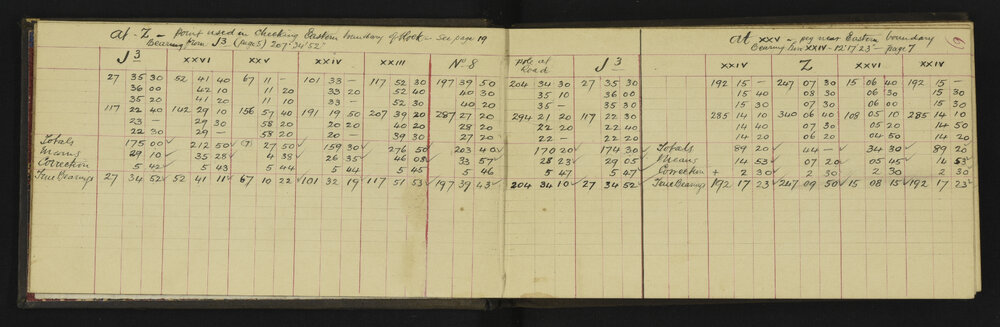 At Z – point used in Checking Eastern boundary of block – See page 19
Bearing from J3 (page 5) 207° 34' 52"
J 3 XXVI XXV XXIV XXIII No 8 pole at Road J 3
27 35 30 52 41 40 67 11 – 101 33 – 117 52 30 197 39 50 204 34 30 27 35 30
36 00 42 10 11 20 33 20 52 40 40 30 35 10 36 00
35 20 41 20 11 10 33 – 52 30 40 20 35 – 35 30
117 22 40 142 29 10 156 57 40 191 19 50 207 39 20 287 27 20 294 21 20 117 22 30
23 – 29 30 58 20 20 20 40 20 28 20 22 20 22 40
22 30 29 – 58 20 20 39 30 27 20 22 – 22 20
Totals 175 00 212 50 (7) 27 50 159 30 276 50 203 40 170 20 174 30
Means 29 10 35 28 4 38 26 35 46 08 33 57 28 23 29 05
Correction 5 42 5 43 5 44 5 44 5 45 5 46 5 47 5 47
True Bearings 27 34 52 52 41 11 67 10 22 101 32 19 117 51 53 197 39 43 204 34 10 27 34 52
9
At XXV – peg near Eastern boundary
Bearing from XXIV – 12° 17' 23" – page 7
XXIV Z XXVI XXIV
192 15 – 247 07 30 15 06 40 192 15 –
15 40 08 30 06 30 15 30
15 30 07 30 06 00 15 30
285 14 10 340 06 40 108 05 10 285 14 10
14 40 07 30 05 20 14 50
14 20 06 20 04 50 14 20
Totals 89 20 44 – 34 30 89 20
Means 14 53 07 20 05 45 14 53
Correction + 2 30 2 30 2 30 2 30
True Bearings 192 17 23 247 09 50 15 08 15 192 17 23